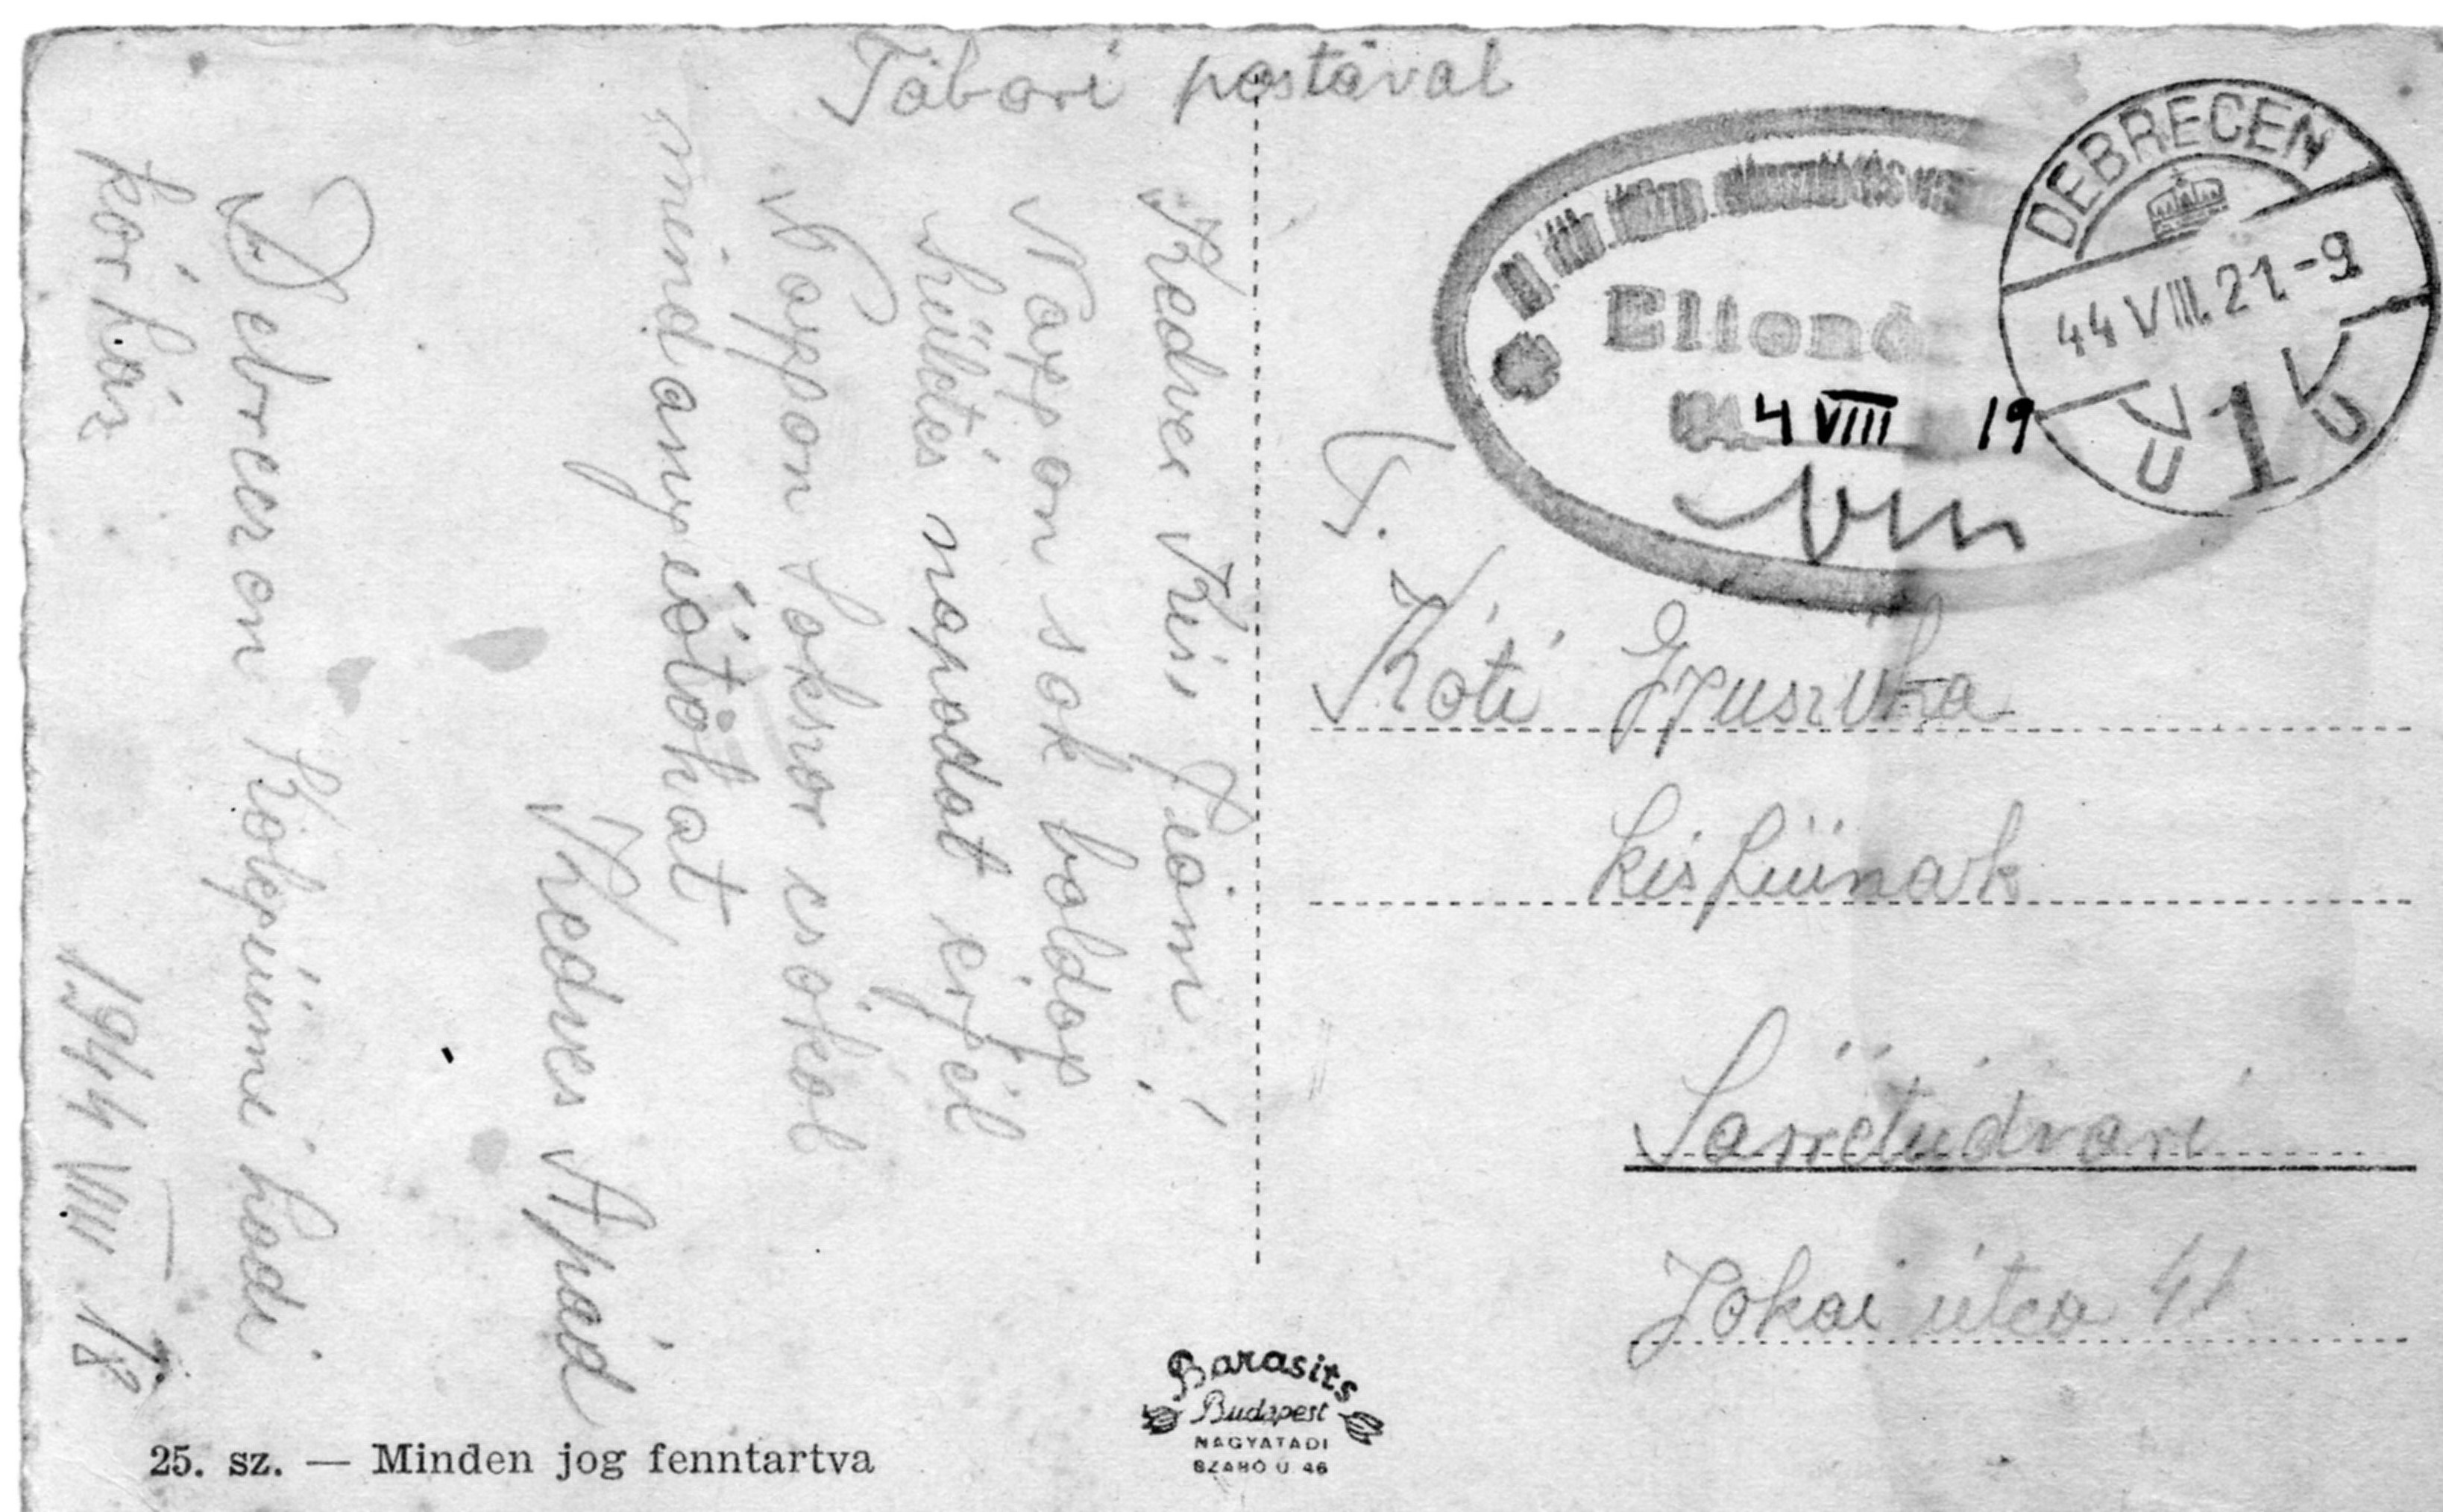 Tábori postával
Kedves Kiss fiam!
Nagyon sok boldog
születés napodat érjél
Nagyon sokszor csókol
mindanyiótokat
Kedves Apád
Debrecen Kolegiumi hadi
kórház
1944 VIII 18.
DEBRECEN
44 VIII. 21.-9
1
U U
Ellenő
4 VIII 19
T.
Kóti Gyuszika
kisfiúnak
Sárrétudvari
Jókai útca 41
25. sz. — Minden jog fenntartva
Barasits
Budapest
NAGYATADI
SZABÓ U. 46